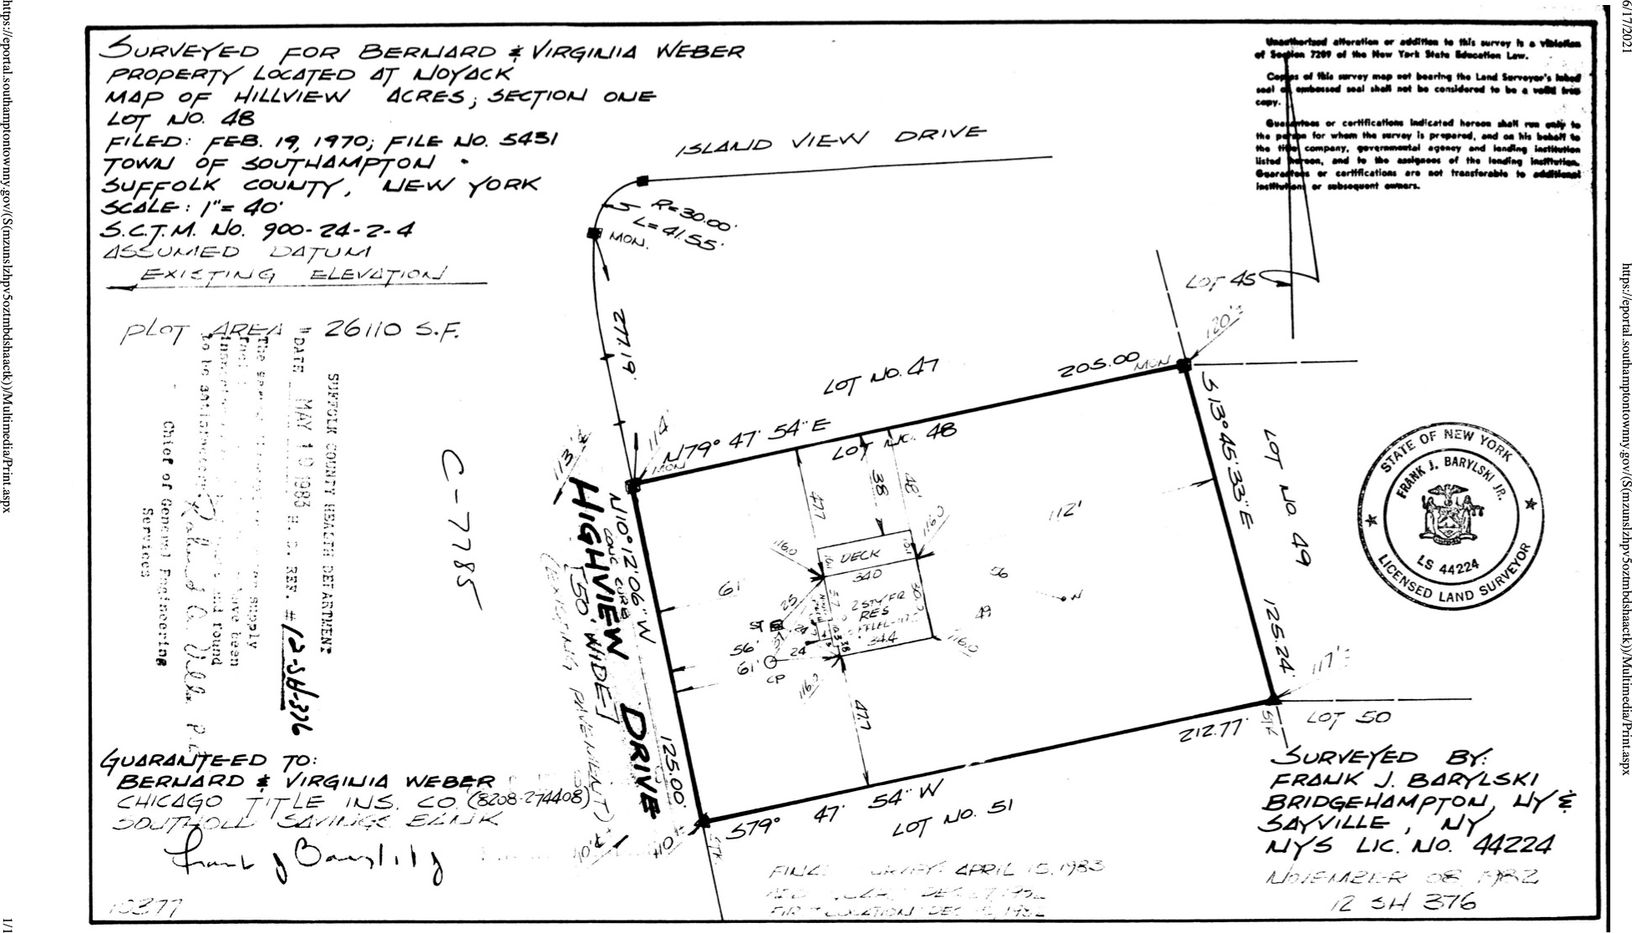 6/17/2021
https://eportal.southamptontownny.gov/(S(mzunslzhpv5oztmbdshaactk))/Multimedia/Print.aspx
SURVEYED FOR BERNARD & VIRGINIA WEBER
PROPERTY LOCATED AT NOYACK
MAP OF HILLVIEW ACRES, SECTION ONE
LOT NO. 48
FILED: FEB. 19, 1970; FILE NO. 5431
TOWN OF SOUTHAMPTON
SUFFOLK COUNTY, NEW YORK
SCALE: 1"= 40'
S.C.T.M. NO. 900-24-2-4
ASSUMED DATUM
EXISTING ELEVATION
PLOT AREA = 26110 S.F.
Unauthorized alteration or addition to this survey is a violation
of Section 7209 of the New York State Education Law.
Copies of this survey map not bearing the Land Surveyor's inked
seal or embossed seal shall not be considered to be a valid true
copy.
Guarantees or certifications indicated hereon shall run only to
the person for whom the survey is prepared, and on his behalf to
the title company, governmental agency and lending institution
listed hereon, and to the assignees of the lending institution.
Guarantees or certifications are not transferable to additional
institutions or subsequent owners.
ISLAND VIEW DRIVE
R=30.00'
L=41.55'
MON.
277.19'
LOT 45
120'±
LOT NO. 47
205.00
MON
N79° 47' 54"E
LOT NO. 48
114'
MON
S13°45'33"E
125.24'
LOT NO. 49
117'±
STK
LOT 50
212.77'
S79° 47' 54" W
LOT NO. 51
N10°12'06"W
125.00'
CONC CURB
HIGHVIEW DRIVE
(50' WIDE)
(EXISTING PAVEMENT)
STK
47.7
38
48'
112'
116.0
116.0
DECK
34.0
2 STY FR
RES
34.4
116.0
116.0
61'
25
56'
61'
24
ST
CP
56
49
N
47.7
SUFFOLK COUNTY HEALTH DEPARTMENT
DATE MAY 10 1983 H.S. REF. # 12-SH-376
supply
have been
and found
to be satisfactory
Chief of General Engineering
Services
C-7785
STATE OF NEW YORK
FRANK J. BARYLSKI JR.
LS 44224
LICENSED LAND SURVEYOR
GUARANTEED TO:
BERNARD & VIRGINIA WEBER
CHICAGO TITLE INS. CO. (8208-274408)
SOUTHOLD SAVINGS BANK
Frank J Barylski
SURVEYED BY:
FRANK J. BARYLSKI
BRIDGEHAMPTON, NY &
SAYVILLE, NY
NYS LIC. NO. 44224
NOVEMBER 08 1982
12 SH 376
FINAL SURVEY: APRIL 15, 1983
10377
https://eportal.southamptontownny.gov/(S(mzunslzhpv5oztmbdshaactk))/Multimedia/Print.aspx
1/1